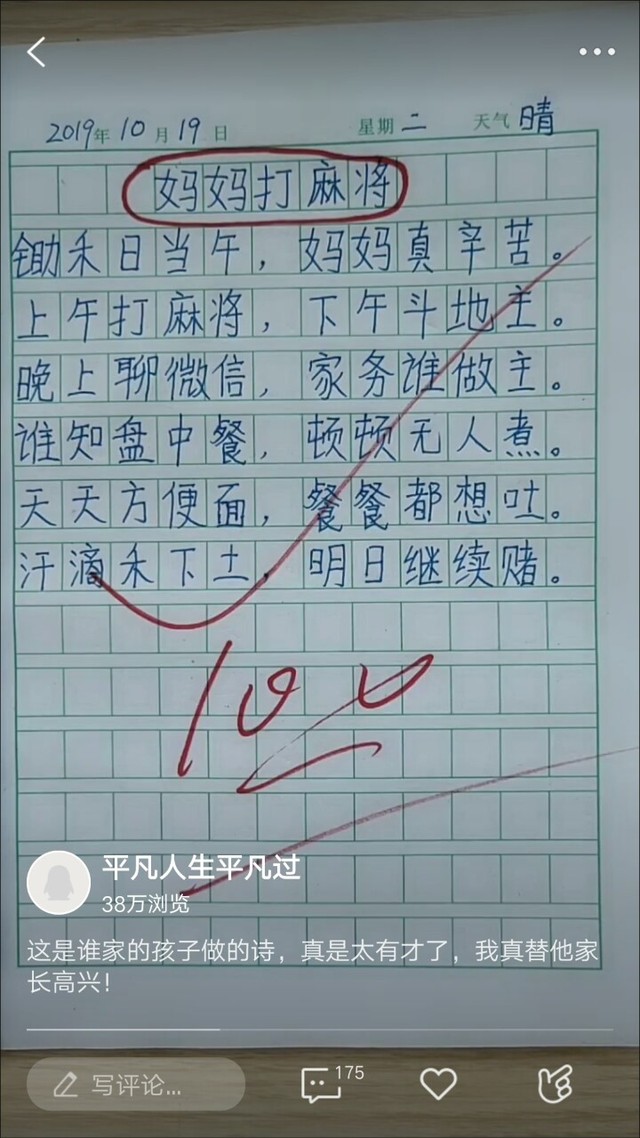 2019年 10月 19日 星期 二 天气 晴
妈妈打麻将
锄禾日当午，妈妈真辛苦。
上午打麻将，下午斗地主。
晚上聊微信，家务谁做主。
谁知盘中餐，顿顿无人煮。
天天方便面，餐餐都想吐。
汗滴禾下土，明日继续赌。
100
平凡人生平凡过
38万浏览
这是谁家的孩子做的诗，真是太有才了，我真替他家
长高兴！
写评论...
175